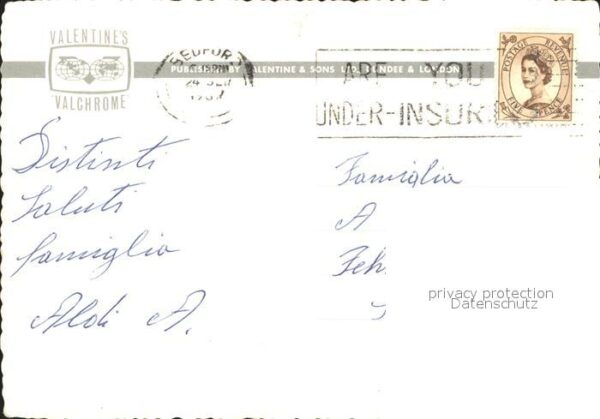 VALENTINE'S
VALCHROME
PUBLISHED BY VALENTINE & SONS LTD. DUNDEE & LONDON
BEDFORD
24 SEP
ARE YOU
UNDER-INSUR
POSTAGE REVENUE
FIVE PENCE
Distinti
Saluti
famiglia
Aldi A.
Famiglia
A
Feh
privacy protection
Datenschutz